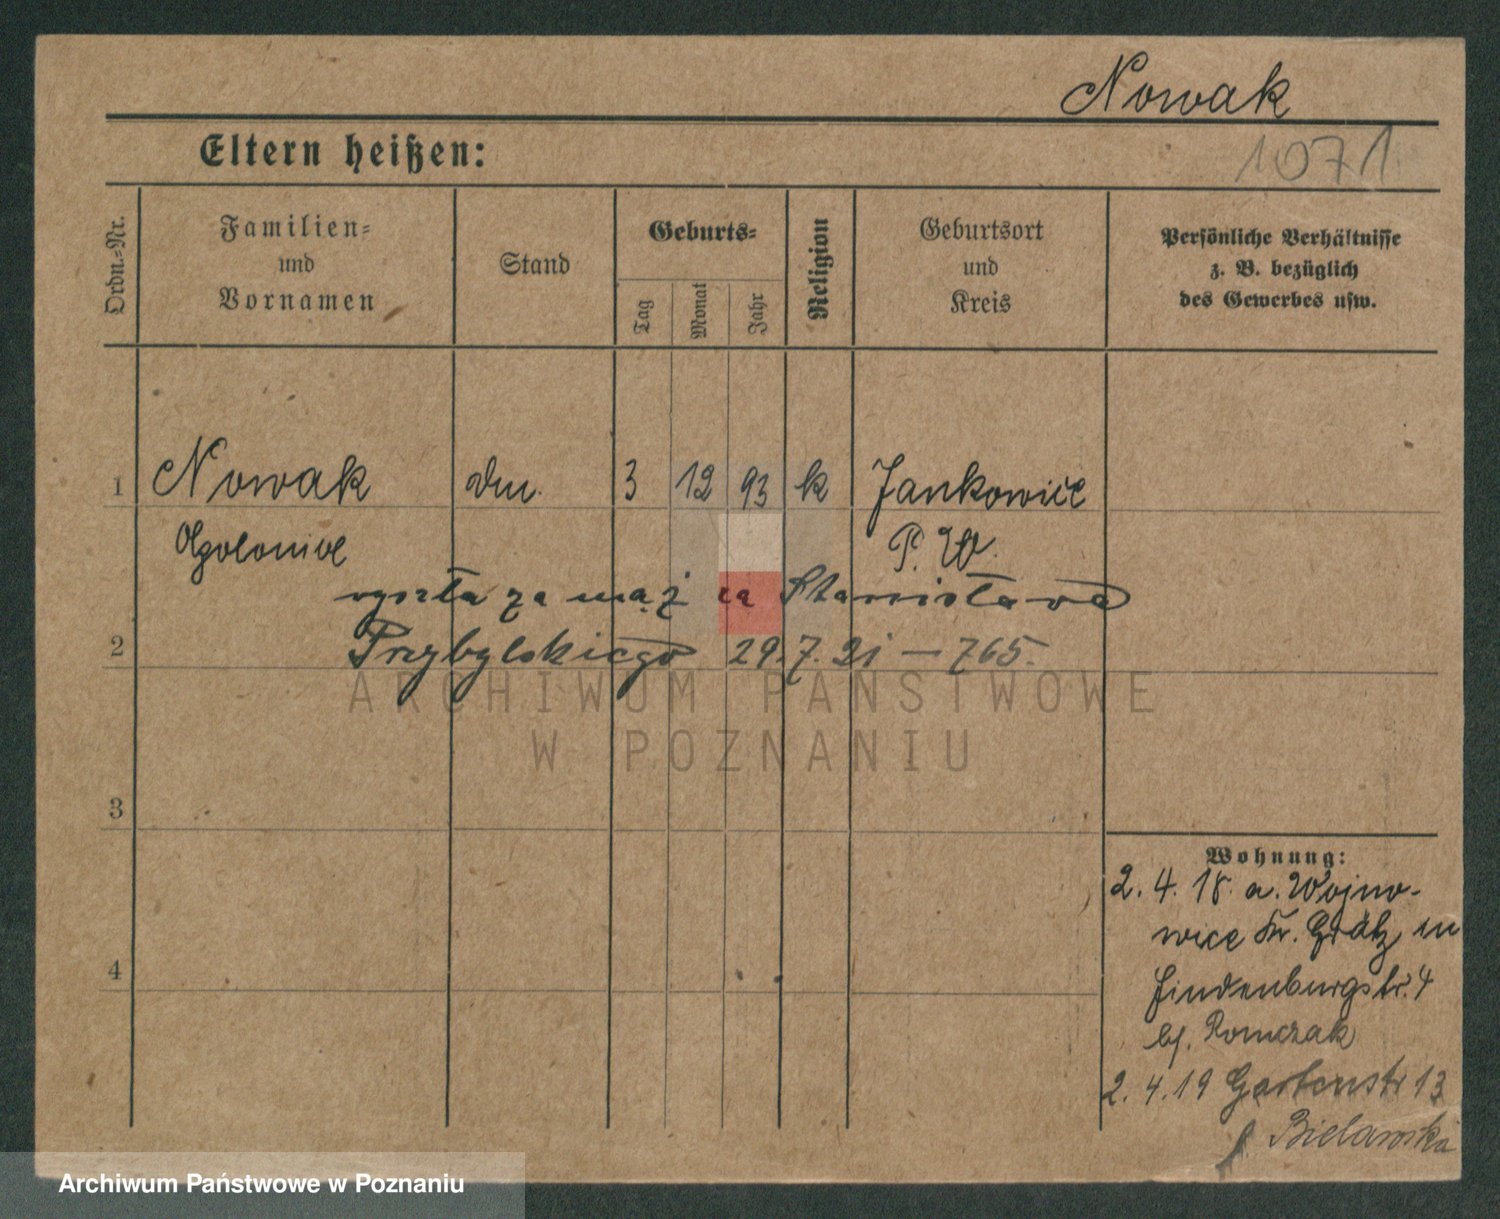 Nowak
1071
Eltern heißen:
Ordn.-Nr.
Familien-
und
Vornamen
Stand
Geburts-
Tag
Monat
Jahr
Religion
Geburtsort
und
Kreis
Persönliche Verhältnisse
z. B. bezüglich
des Gewerbes usw.
1 Nowak 3 12 93 k Jankowice
P. W.
wyszła za mąż za Stanisława
2 Przybylskiego 29.7.21 — 765.
ARCHIWUM PAŃSTWOWE
W POZNANIU
3
4
Wohnung:
2. 4. 18. a. Wojno-
wice Kr. Grätz
Hindenburgstr. 4
b/. Romczak
2. 4. 19 Gartenstr 13
Bielawska
Archiwum Państwowe w Poznaniu